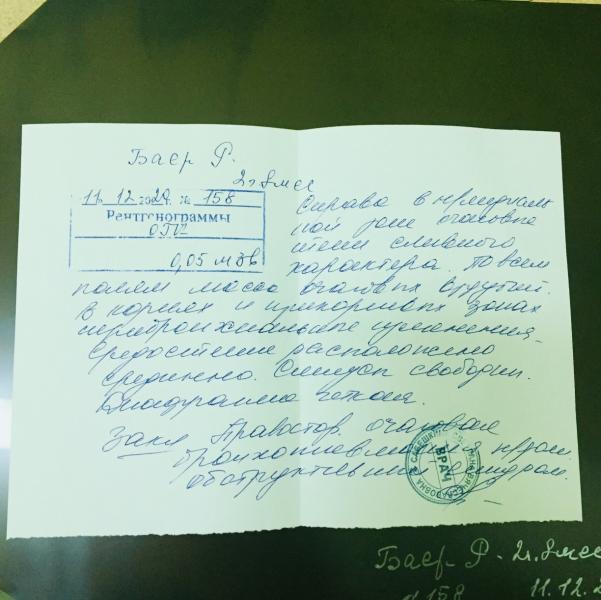 Баер Р.
2г.8мес
11. 12. 2024 № 158
Рентгенограммы
ОГК
0,05 мЗв
Справа в
ной зоне очаговые
тени сливного
характера. По всем
полям масса очаговых
В корнях и прикорневых зонах
перибронхиальные изменения.
Средостение расположено
срединно. Синусы свободны.
Диафрагма четкая.
Закл. Правостор. очаговая
бронхопневмония
обструктивным синдром.
ВРАЧ
Баер Р. 2г.8мес
158 11.12.2